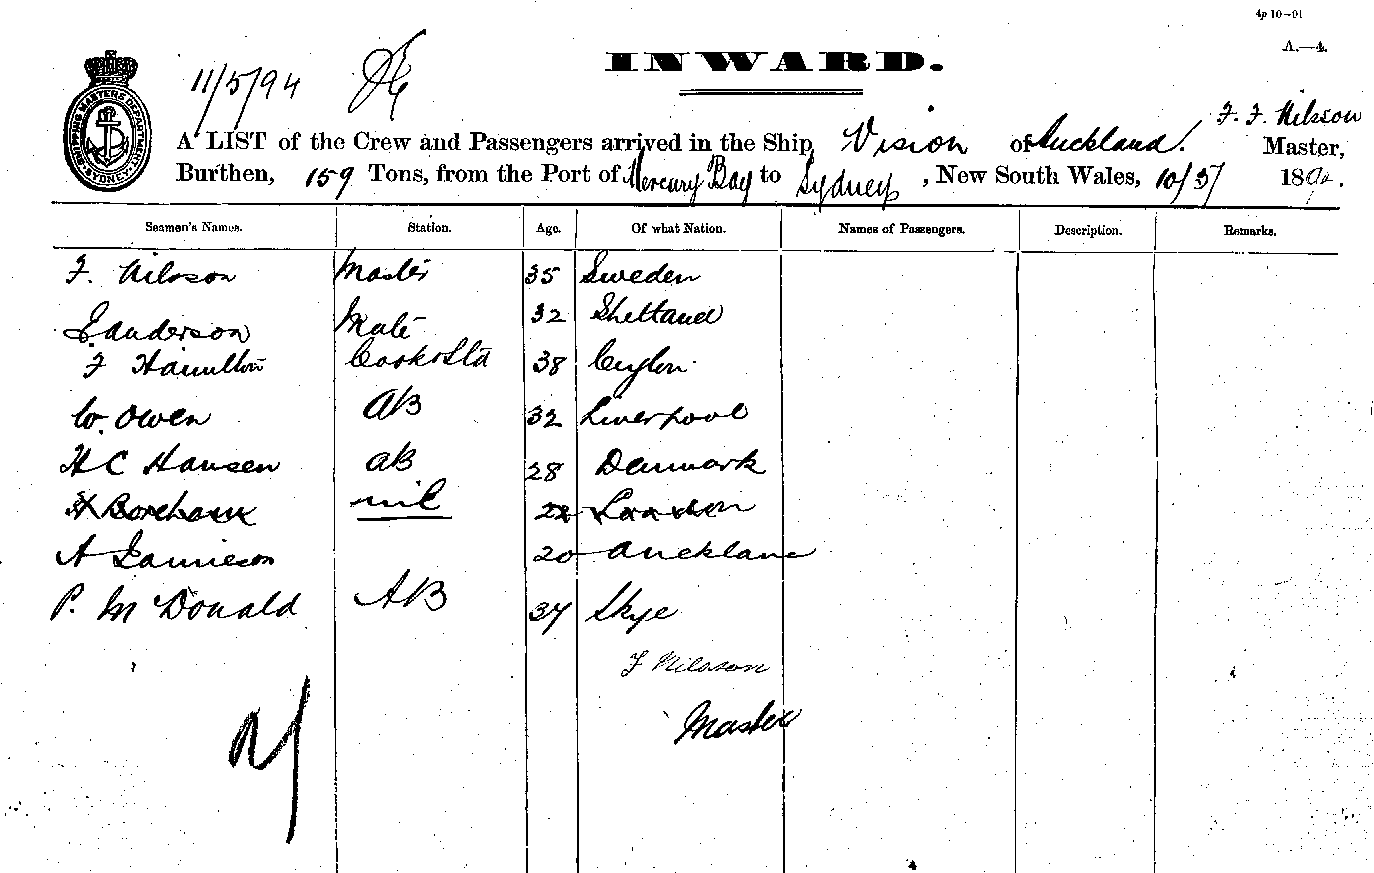 4p 10–91
A.—4.
INWARD.
11/5/94
SHIPPING MASTERS DEPARTMENT SYDNEY
F. F. Nilsson
A LIST of the Crew and Passengers arrived in the Ship Vision of Auckland. Master,
Burthen, 159 Tons, from the Port of Mercury Bay to Sydney, New South Wales, 10/5/ 189
Seamen's Names. Station. Age. Of what Nation. Names of Passengers. Description. Remarks.
F. Nilsson Master 35 Sweden
Sanderson Mate 32 Shetland
F Hamilton Cook & Std 38 Ceylon
W. Owen AB 32 Liverpool
H C Hansen AB 28 Denmark
nil 22 London
A Jamieson 20 Auckland
P. McDonald AB 37 Skye
F Nilsson
Master